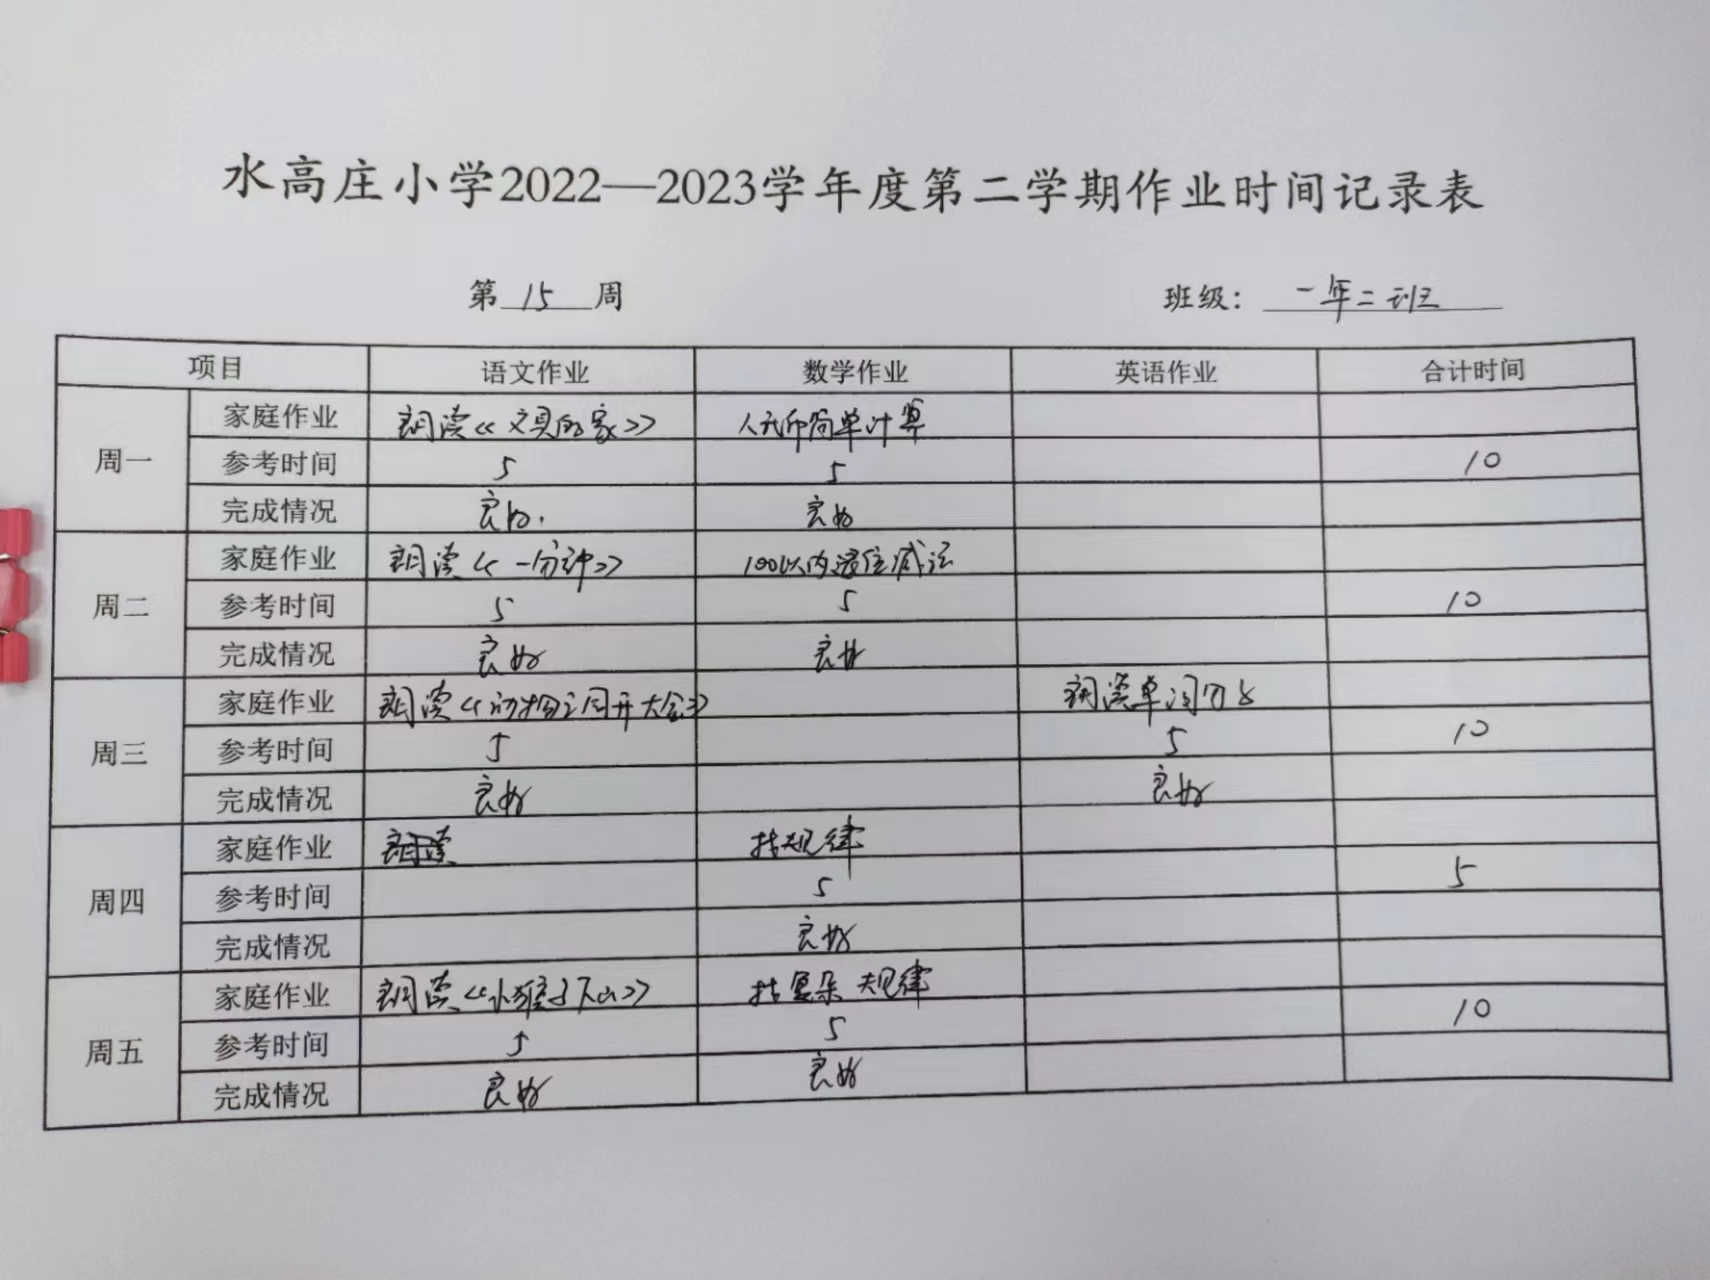 水高庄小学2022—2023学年度第二学期作业时间记录表
第 15 周 班级： 一年二班
项目 语文作业 数学作业 英语作业 合计时间
周一
家庭作业 朗读《文具的家》 人民币简单计算
参考时间 5 5 10
完成情况 良好. 良好
周二
家庭作业 朗读《一分钟》 100以内退位减法
参考时间 5 5 10
完成情况 良好 良好
周三
家庭作业 朗读《动物王国开大会》 朗读单词
参考时间 5 5 10
完成情况 良好 良好
周四
家庭作业 朗读 找规律
参考时间 5 5
完成情况 良好
周五
家庭作业 朗读《小猴子下山》 找复杂规律
参考时间 5 5 10
完成情况 良好 良好